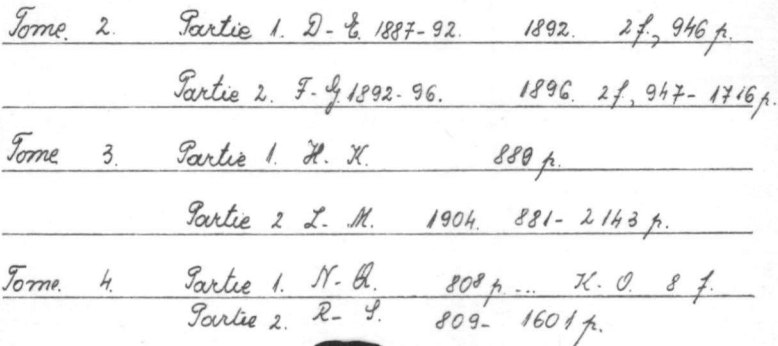 Tome. 2. Partie 1. D-E. 1887-92. 1892. 2 f., 946 p.
Partie 2. F-G. 1892-96. 1896. 2 f., 947-1716 p.
Tome 3. Partie 1. H. K. 880 p.
Partie 2 L-M. 1904. 881-2143 p.
Tome. 4. Partie 1. N-Q. 808 p... K. O. 8 f.
Partie 2. R-S. 809-1601 p.